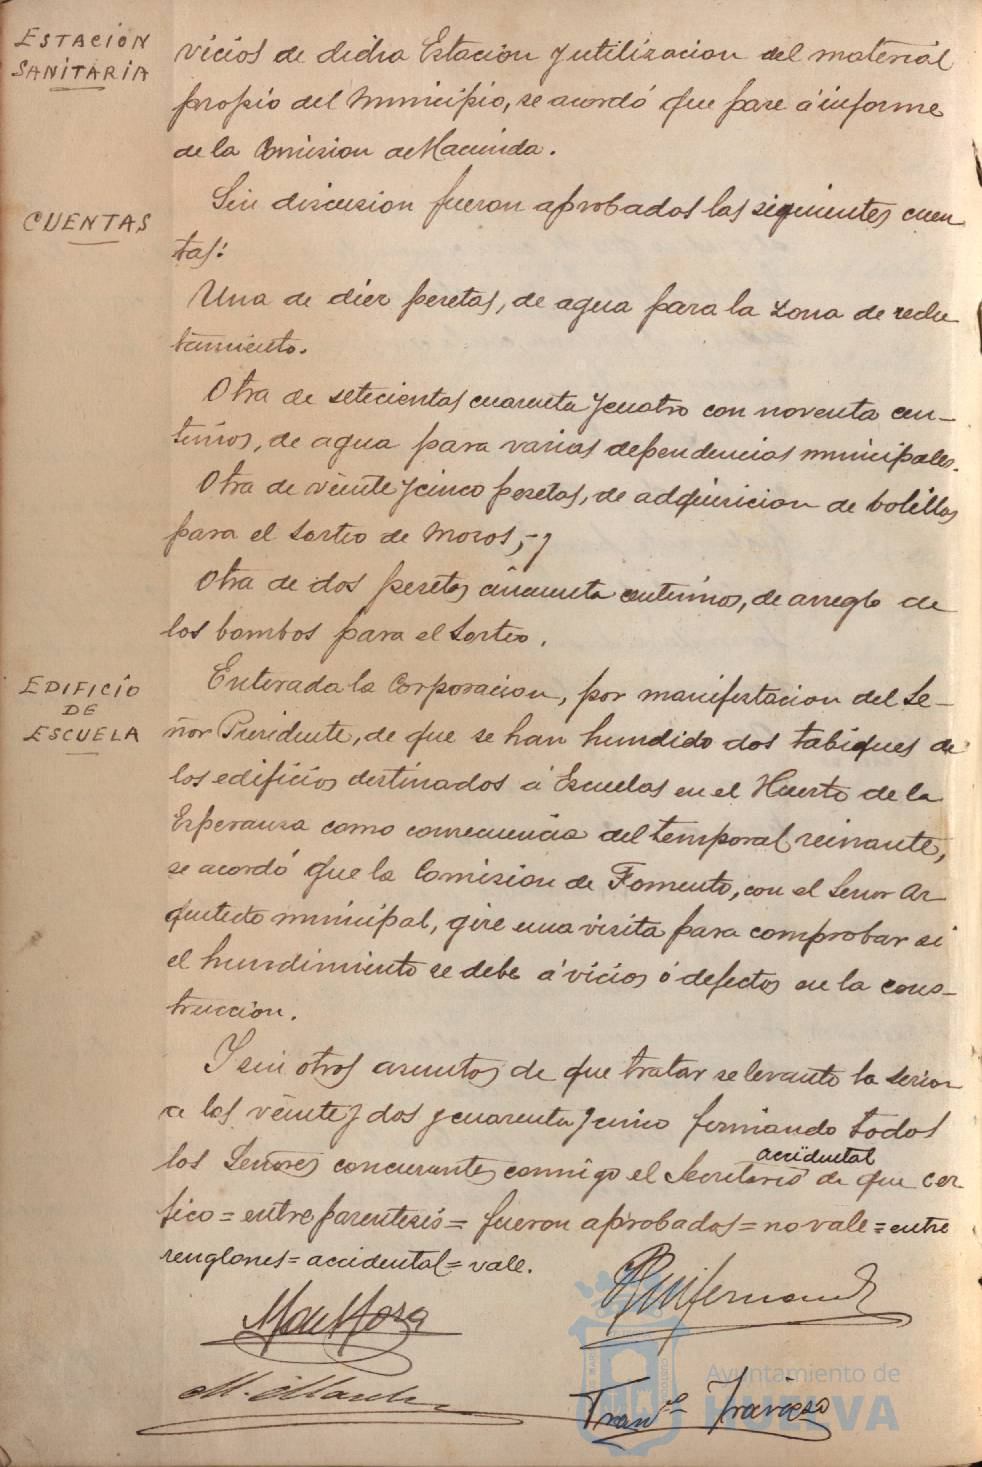 ESTACIÓN
SANITARIA
vicios de dicha Estacion y utilizacion del material
propio del Municipio, se acordó que pase á informe
de la Comision de Hacienda.
CUENTAS
Sin discusion fueron aprobados las siguientes cuen
tas:
Una de diez pesetas, de agua para la zona de reclu
tamiento.
Otra de setecientas cuarenta y cuatro con noventa cen-
timos, de agua para varias dependencias municipales.
Otra de veinte y cinco pesetas, de adquisicion de bolillas
para el sorteo de mozos,- y
Otra de dos pesetas cincuenta centimos, de arreglo de
los bombos para el sorteo.
EDIFICIO
DE
ESCUELA
Enterada la Corporacion, por manifestacion del Se-
ñor Presidente, de que se han hundido dos tabiques de
los edificios destinados á Escuelas en el Huerto de la
Esperanza como consecuencia del temporal reinante,
se acordó que la Comision de Fomento, con el Señor Ar
quitecto municipal, gire una visita para comprobar si
el hundimiento se debe á vicios ó defectos en la cons-
truccion.
Y sin otros asuntos de que tratar se levanto la sesion
a las veinte y dos y cuarenta y cinco firmando todos
accidental
los Señores concurrentes conmigo el Secretario de que cer
tifico = entre parentesis = fueron aprobados = no vale = entre
renglones = accidental = vale.
Ayuntamiento de
HUELVA